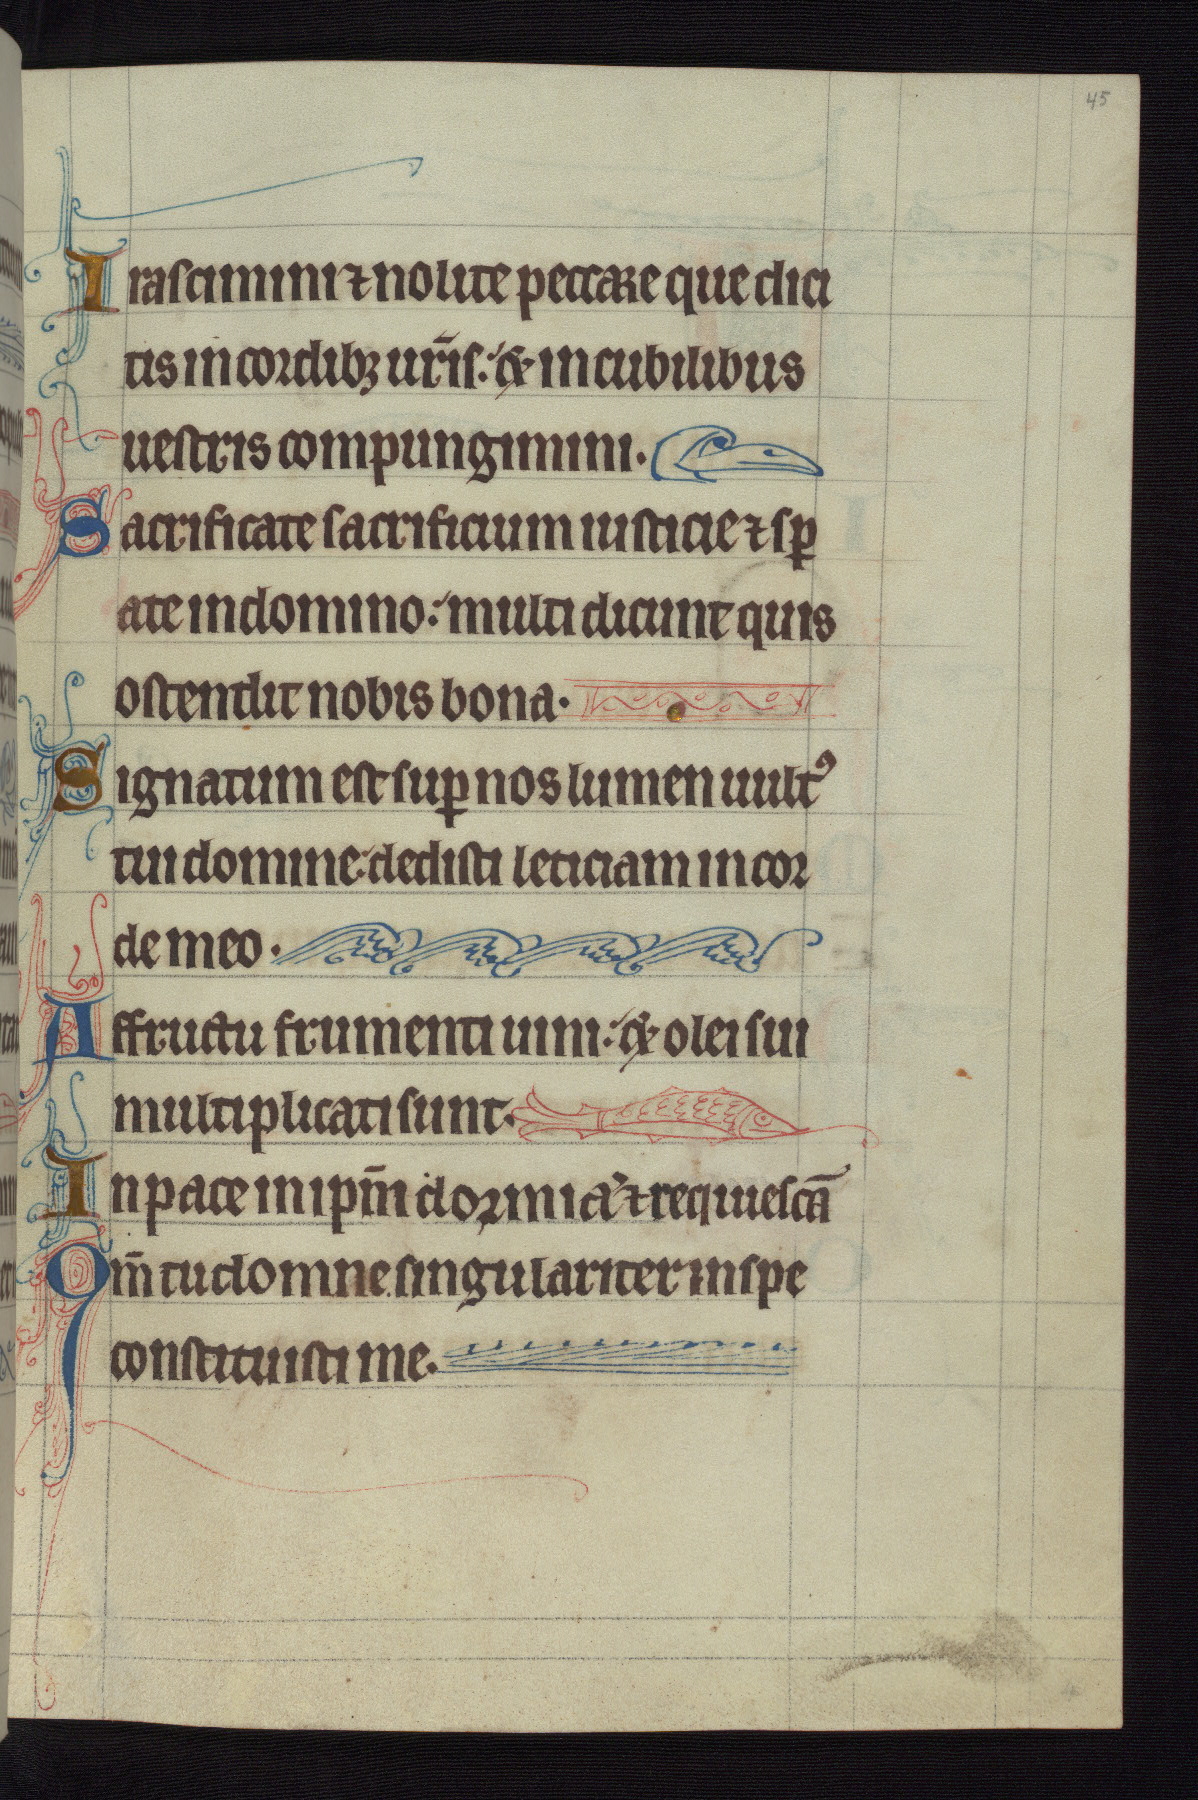 45
Irascimini ⁊ nolite peccare que dici
tis in cordibꝫ ur̄is: & in cubilibus
uestris compungimini.
Sacrificate sacrificium iusticie ⁊ sꝑ
ate in domino: multi dicunt quis
ostendit nobis bona.
Signatum est suꝑ nos lumen uultꝰ
tui domine: dedisti leticiam in cor
de meo.
A ffructu frumenti uini: & olei sui
multiplicati sunt.
In pace in ip̄m dormiā ⁊ requiescā
Qm̄ tu domne singulariter in spe
constituisti me.